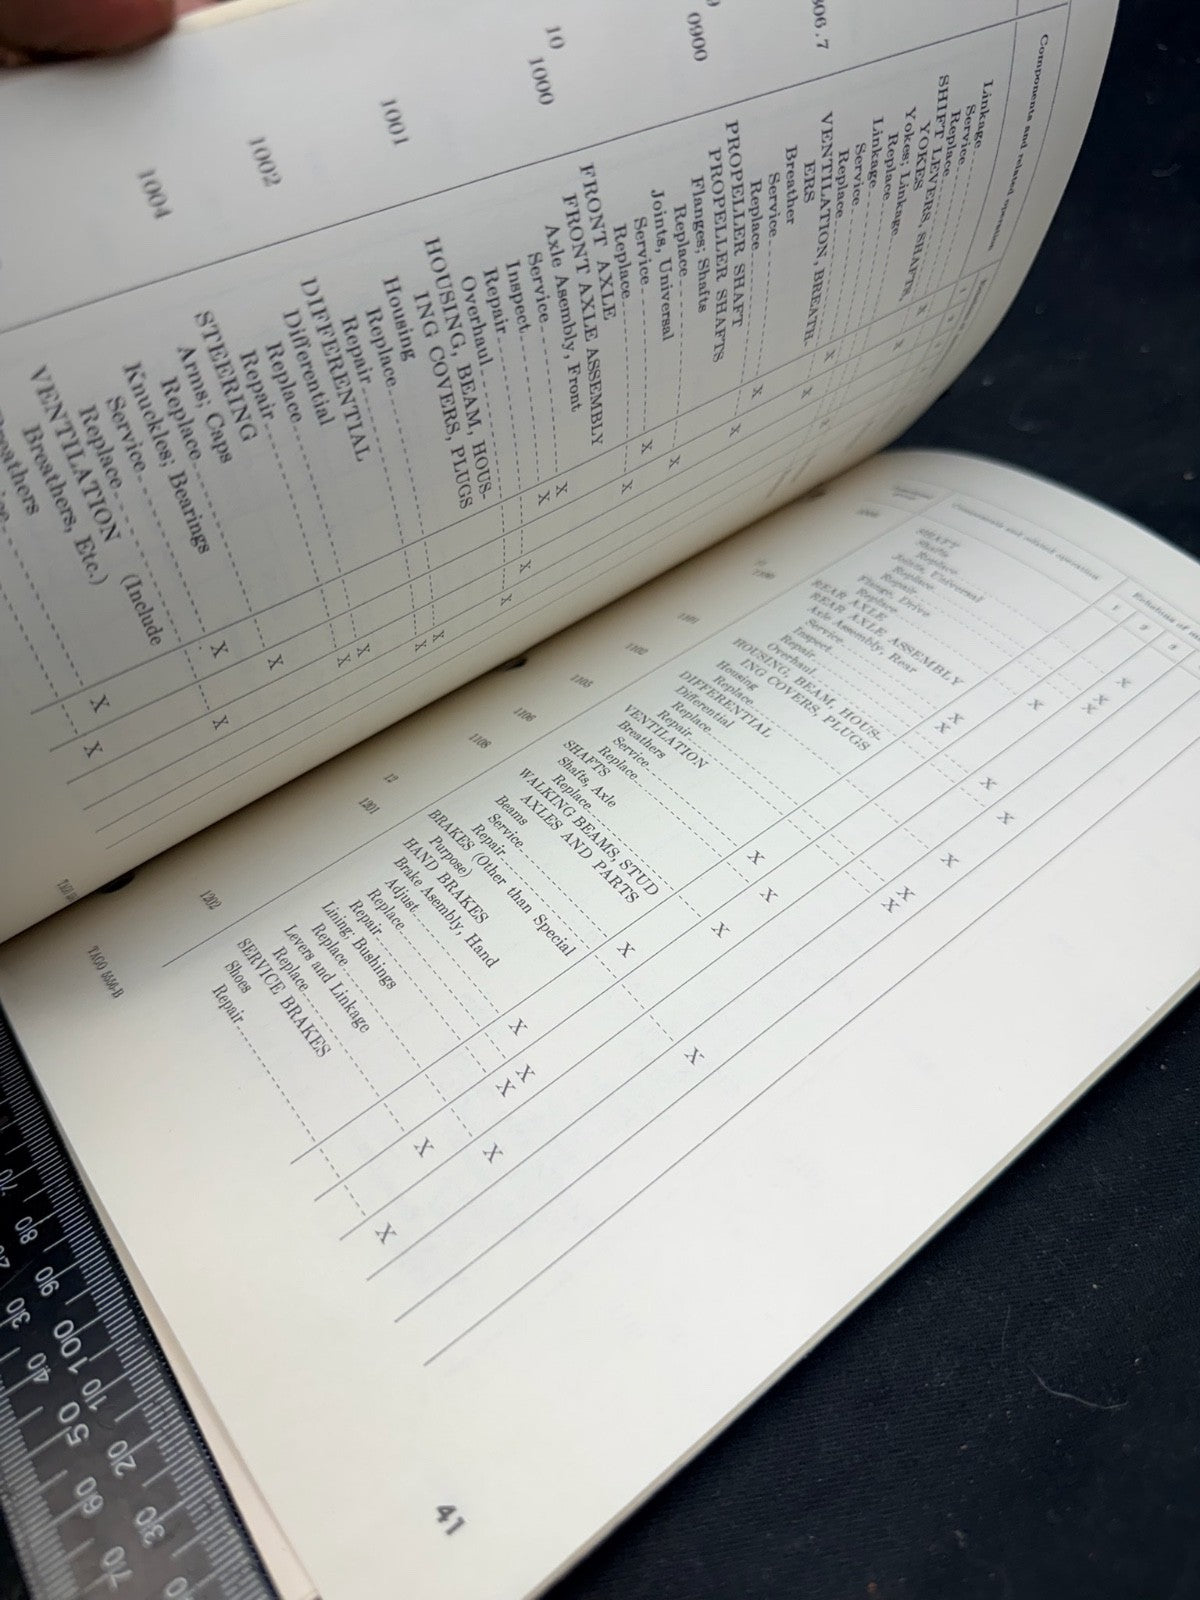 Components and related operation
Linkage
Service
Replace
SHIFT LEVERS, SHAFTS,
YOKES
Yokes; Linkage
Replace
Linkage
Service
Replace
806.7 VENTILATION, BREATH-
ERS
Breather
Service
Replace
0900 PROPELLER SHAFT
PROPELLER SHAFTS
Flanges; Shafts
Replace
Joints, Universal
Service
Replace
10 FRONT AXLE
1000 FRONT AXLE ASSEMBLY
Axle Asembly, Front
Service
Inspect
Repair
Overhaul
1001 HOUSING, BEAM, HOUS-
ING COVERS, PLUGS
Housing
Replace
Repair
1002 DIFFERENTIAL
Differential
Replace
Repair
1004 STEERING
Arms; Caps
Replace
Knuckles; Bearings
Service
Replace
VENTILATION (Include
Breathers, Etc.)
Components and related operation
1 2 3
SHAFT
Shafts
Replace
Repair
Joints, Universal
Replace
Repair
Flange, Drive
Replace
11 REAR AXLE
1100 REAR AXLE ASSEMBLY
Axle Assembly, Rear
Service
Inspect
Repair
Overhaul
1101 HOUSING, BEAM, HOUS-
ING COVERS, PLUGS
Housing
Replace
1102 DIFFERENTIAL
Differential
Replace
Repair
1103 VENTILATION
Breathers
Service
Replace
1106 SHAFTS
Shafts, Axle
Replace
1108 WALKING BEAMS, STUD
AXLES AND PARTS
Beams
Service
Repair
12 BRAKES (Other than Special
Purpose)
1201 HAND BRAKES
Brake Asembly, Hand
Adjust
Replace
Repair
Lining; Bushings
Replace
Levers and Linkage
Replace
1202 SERVICE BRAKES
Shoes
Repair
TAGO 6596-B
41
70 80 90 100 10 20 30
20 30 40 50 60 70